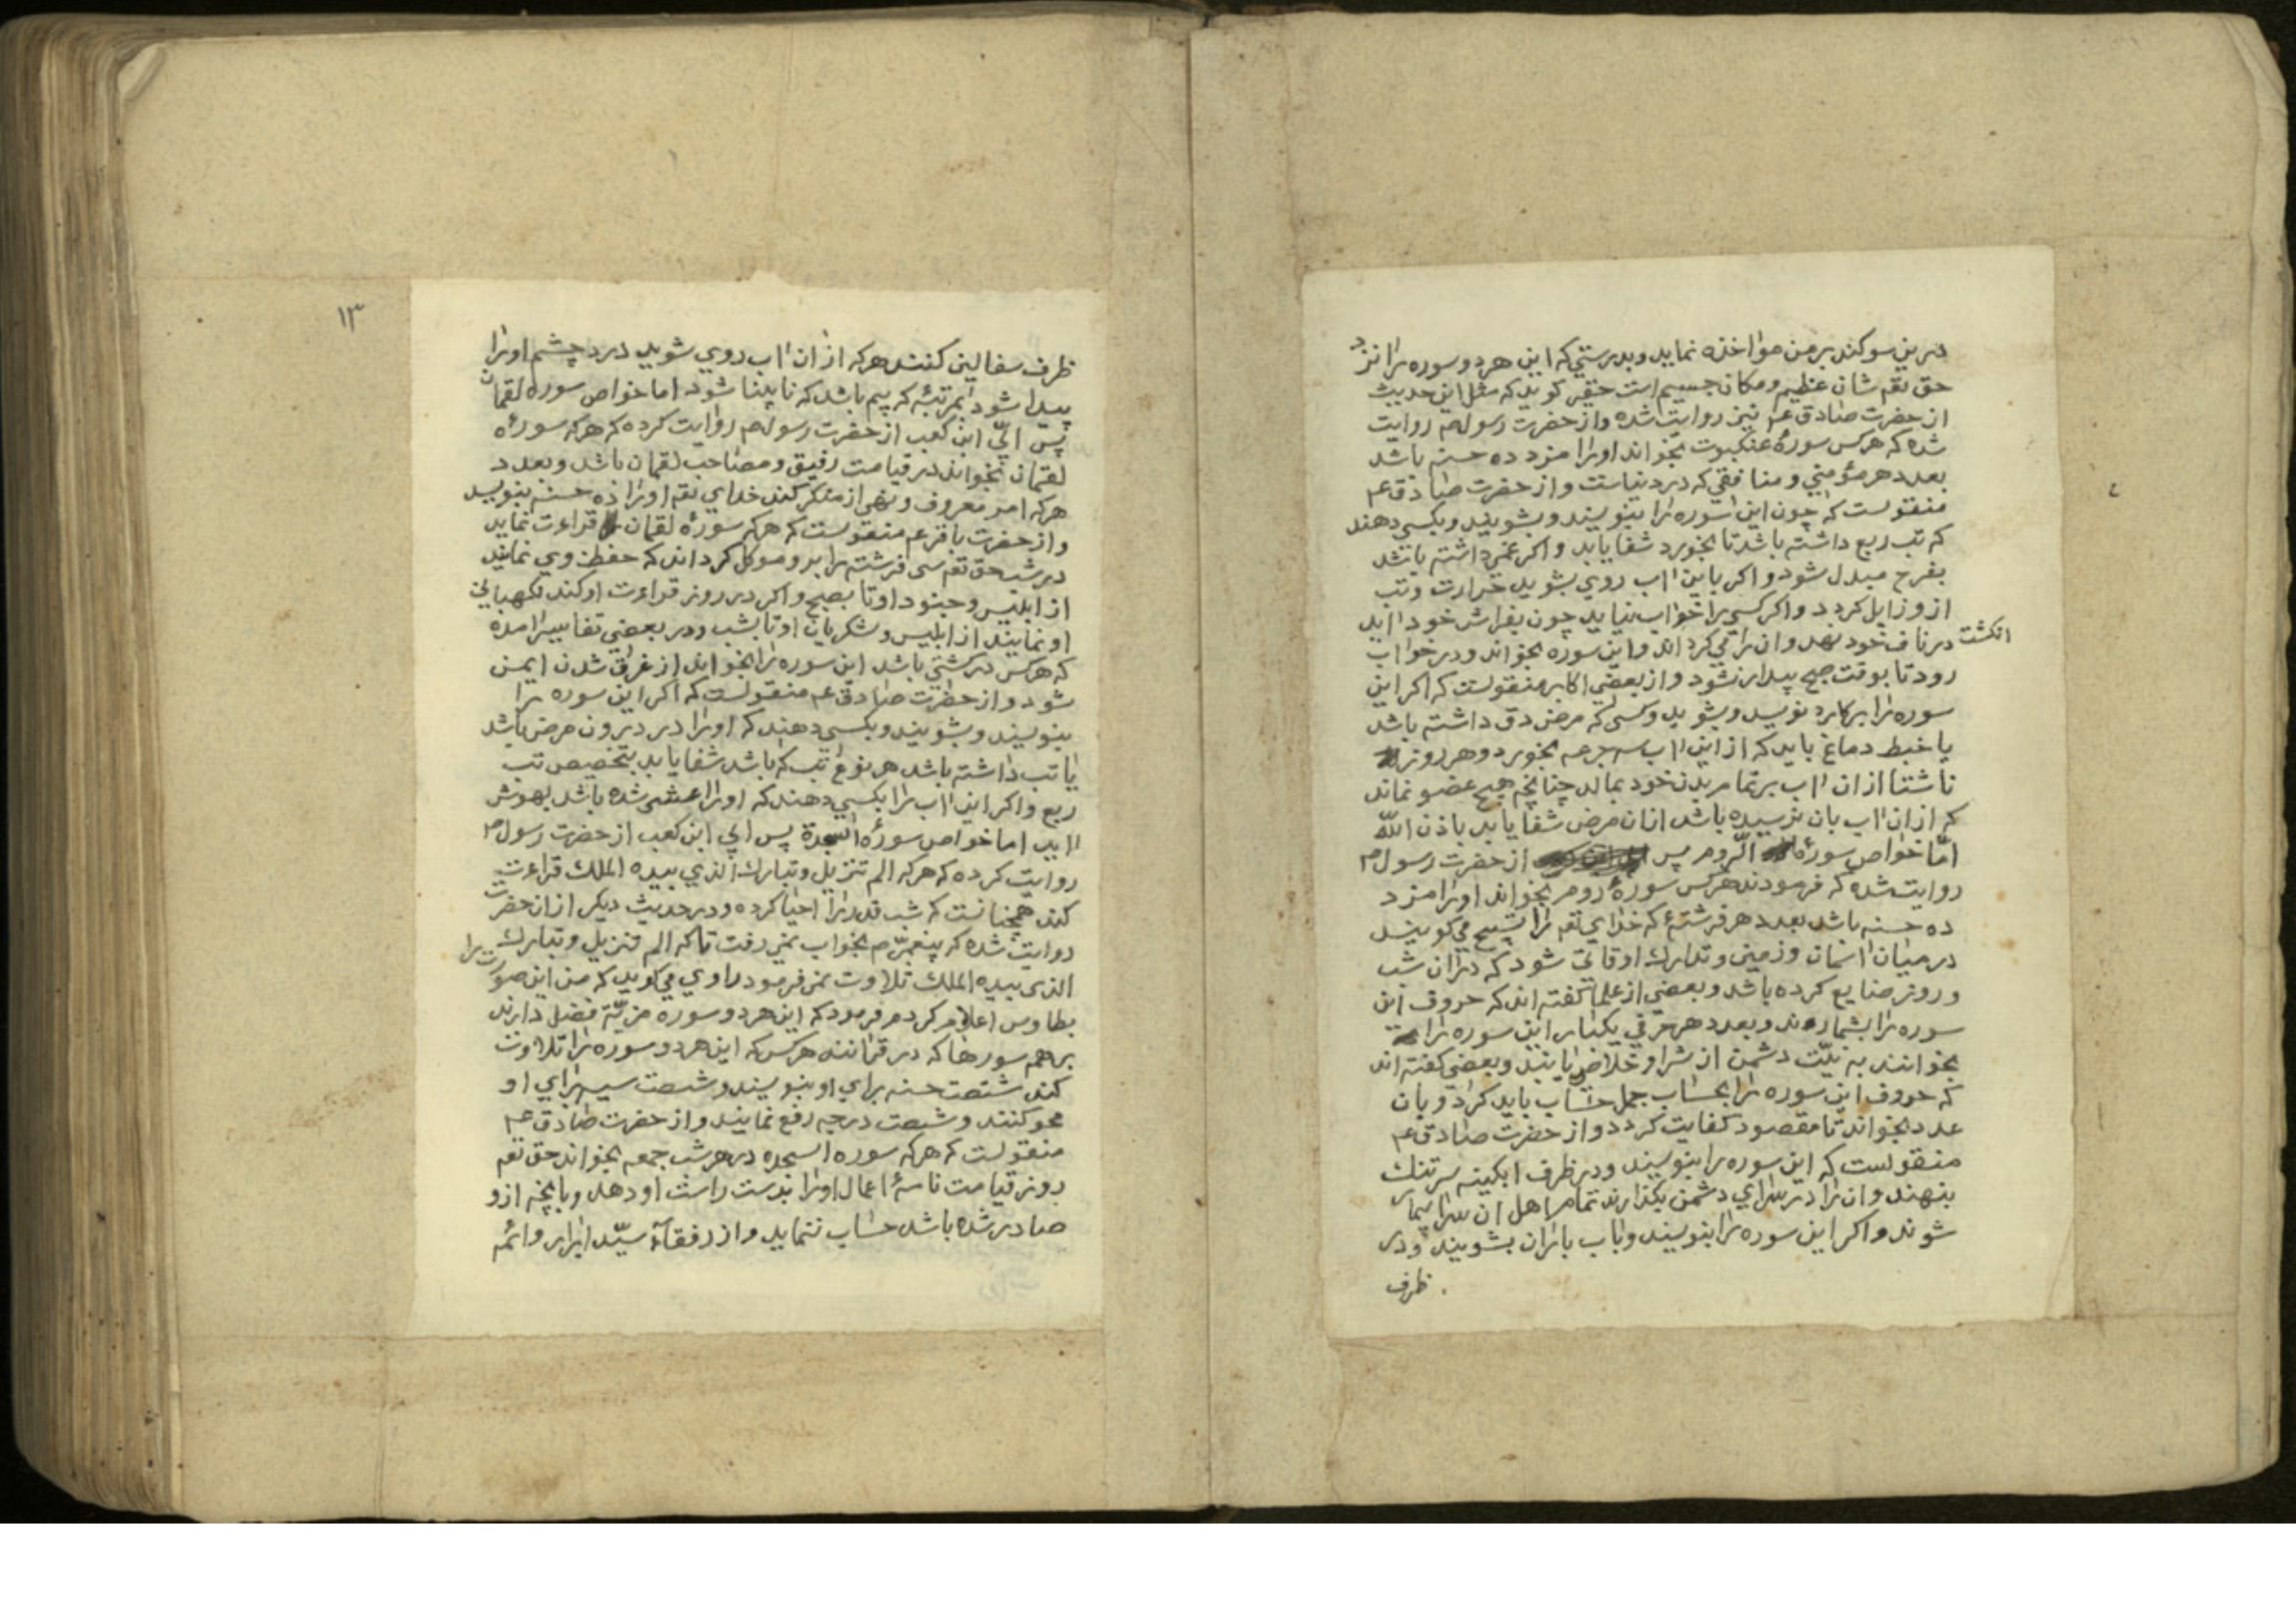 درین سوکند بر من مواخذه نماید و بدرستی که این هر دو سوره را نزد
حق تعم شان عظیم و مکان جسیم است حقیر کوید که مثل این حدیث
از حضرت صادق عم نیز روایت شده و از حضرت رسول صم روایت
شده که هرکس سورهٔ عنکبوت بخواند اورا مزد ده حسنه باشد
بعدد هر مؤمنی و منافقی که در دنیاست و از حضرت صادق عم
منقولست که چون این سوره را بنویسند و بشویند و بکسی دهند
که تب ربع داشته باشد تا بخورد شفا یابد و اکر غمی داشته باشد
بفرح مبدل شود و اکر باین ااب روی بشوید حرارت و تب
ازو زایل کردد و اکر کسی را خواب نیاید چون بفراش خود ااید
انکشت در ناف خود نهد و ان را می کرداند و این سوره بخواند و در خوااب
رود تا بوقت صبح بیدار نشود و از بعضی اکابر منقولست که اکر این
سوره را بر کارد نویسد و بشوید و کسی که مرض دق داشته باشد
یا خبط دماغ باید که از این ااب سه جرعه بخورد و هر روز
ناشتا از ان ااب بر تمام بدن خود بمالد چنانچه هیچ عضو نماند
که از ان ااب بان نرسیده باشد ازان مرض شفا یابد باذن اللّه
امّا خواص سورهٔ الرّوم پس از حضرت رسول صم
روایت شده که فرمودند هرکس سورهٔ روم بخواند اورا مزد
ده حسنه باشد بعدد هر فرشتهٔ که خدای تعم را تسبیح می کویند
در میان اسمان و زمین و تدارک اوقاتی شود که در ان شب
و روز ضایع کرده باشد و بعضی از علما کفته اند که حروف این
سوره را بشمارند و بعدد هر حرفی یکبار این سوره را
بخوانند به نیّت دشمن از شر او خلاص یابند و بعضی کفته اند
که حروف این سوره را بحساب جمل حساب باید کرد و بان
عدد بخواند تا مقصود کفایت کردد و از حضرت صادق عم
منقولست که این سوره را بنویسند و در ظرف ابکینه سر تنک
بنهند و ان را در سرای دشمن بکذارند تمام اهل ان سرا بیمار
شوند و اکر این سوره را بنویسند و باب باران بشویند و در
ظرف
۱۳
ظرف سفالین کنند هرکه از ان ااب روی شوید درد چشم اورا
پیدا شود بمرتبهٔ که بیم باشد که نابینا شود اما خواص سوره لقمان
پس ابیّ ابن کعب از حضرت رسول صم روایت کرده که هرکه سورهٔ
لقمان بخواند در قیامت رفیق و مصاحب لقمان باشد و بعدد
هرکه امر معروف و نهی از منکر کند خدای تعم اورا ده حسنه بنویسد
و از حضرت باقر عم منقولست که هرکه سورهٔ لقمان قراءت نماید
در شب حق تعم سی فرشته را برو موکل کرداند که حفظ وی نمایند
از ابلیس و جنود او تا بصبح و اکر در روز قراءت او کند نکهبانی
او نمایند از ابلیس و لشکریان او تا بشب و در بعضی تفاسیر امده
که هرکس در کشتی باشد این سوره را بخواند از غرق شدن ایمن
شود و از حضرت صادق عم منقولست که اکر این سوره را
بنویسند و بشویند و بکسی دهند که اورا در درون مرض باشد
یا تب داشته باشد هر نوع تب که باشد شفا یابد بتخصیص تب
ربع و اکر این ااب را بکسی دهند که اورا غشی شده باشد بهوش
ااید اما خواص سورهٔ السجدة پس ابی ابن کعب از حضرت رسول صم
روایت کرده که هرکه الم تنزیل و تبارک الذی بیده الملک قراءت
کند همچنانست که شب قدر را احیا کرده و در حدیث دیکر از ان حضرت
روایت شده که پیغمبر صم بخواب نمی رفت تا که الم تنزیل و تبارک
الذی بیده الملک تلاوت نمی فرمود راوی می کوید که من این صورت را
بطاوس اعلام کردم فرمود که این هر دو سوره مزیّة فضل دارند
بر همه سورها که در قرانند هرکس که این هر دو سوره را تلاوت
کند شصت حسنه برای او بنویسند و شصت سیه برای او
محو کنند و شصت درجه رفع نمایند و از حضرت صادق عم
منقولست که هرکه سوره السجده در هر شب جمعه بخواند حق تعم
روز قیامت نامهٔ اعمال اورا بدست راست او دهد و بانچه ازو
صادر شده باشد حساب ننماید و از رفقاء سیّد ابرار و ائمه